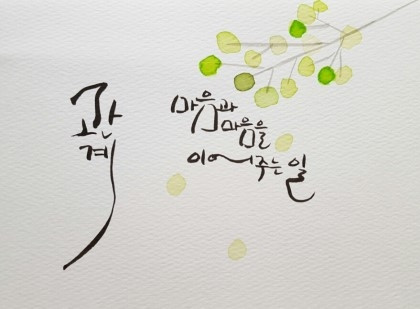 관계
마음과
마음을
이어주는 일